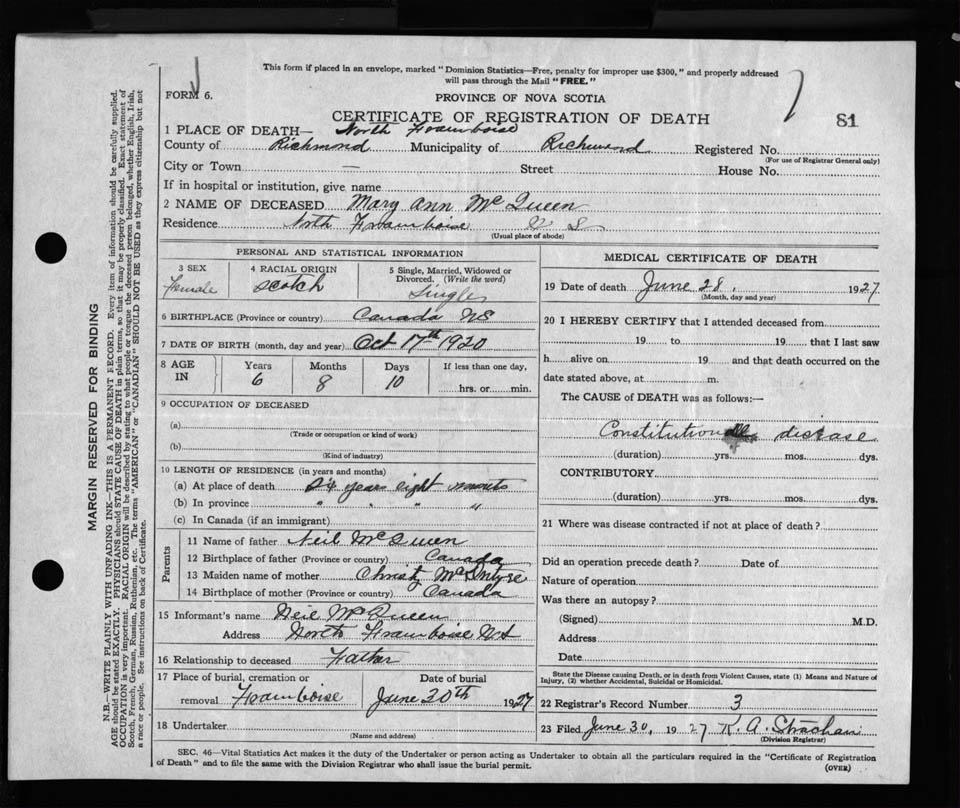 This form if placed in an envelope, marked "Dominion Statistics—Free, penalty for improper use $300," and properly addressed
will pass through the Mail "FREE."
FORM 6.
PROVINCE OF NOVA SCOTIA
CERTIFICATE OF REGISTRATION OF DEATH
81
1 PLACE OF DEATH— North Framboise
County of Richmond Municipality of Richmond Registered No.
(For use of Registrar General only)
City or Town — Street House No.
If in hospital or institution, give name
2 NAME OF DECEASED Mary Ann McQueen
Residence North Framboise
(Usual place of abode)
MARGIN RESERVED FOR BINDING
N.B.—WRITE PLAINLY WITH UNFADING INK—THIS IS A PERMANENT RECORD. Every item of information should be carefully supplied.
AGE should be stated EXACTLY. PHYSICIANS should STATE CAUSE OF DEATH in plain terms, so that it may be properly classified. Exact statement of
OCCUPATION is very important. RACIAL ORIGIN will be described by stating to what people or tongue the deceased person belonged, whether English, Irish,
Scotch, French, German, Russian, Ruthenian, etc. The terms "AMERICAN" or "CANADIAN" SHOULD NOT BE USED as they express citizenship but not
a race or people. See instructions on back of Certificate.
PERSONAL AND STATISTICAL INFORMATION
3 SEX
Female
4 RACIAL ORIGIN
Scotch
5 Single, Married, Widowed or
Divorced. (Write the word)
Single
6 BIRTHPLACE (Province or country) Canada NS
7 DATE OF BIRTH (month, day and year) Oct 17th 1920
8 AGE
IN
Years
6
Months
8
Days
10
If less than one day,
hrs. or min.
9 OCCUPATION OF DECEASED
(a)
(Trade or occupation or kind of work)
(b)
(Kind of industry)
10 LENGTH OF RESIDENCE (in years and months)
(a) At place of death years eight months
(b) In province " " " "
(c) In Canada (if an immigrant)
Parents
11 Name of father Neil McQueen
12 Birthplace of father (Province or country) Canada
13 Maiden name of mother Christy McIntyre
14 Birthplace of mother (Province or country) Canada
15 Informant's name Neil McQueen
Address North Framboise NS
16 Relationship to deceased Father
17 Place of burial, cremation or
removal Framboise
Date of burial
June 30th 1927
18 Undertaker
(Name and address)
MEDICAL CERTIFICATE OF DEATH
19 Date of death June 28, 1927
(Month, day and year)
20 I HEREBY CERTIFY that I attended deceased from
19 to 19 that I last saw
h alive on 19 and that death occurred on the
date stated above, at m.
The CAUSE of DEATH was as follows:—
Constitutional disease
(duration) yrs. mos. dys.
CONTRIBUTORY.
(duration) yrs. mos. dys.
21 Where was disease contracted if not at place of death?
Did an operation precede death? Date of
Nature of operation
Was there an autopsy?
(Signed) M.D.
Address
Date
State the Disease causing Death, or in death from Violent Causes, state (1) Means and Nature of
Injury, (2) whether Accidental, Suicidal or Homicidal.
22 Registrar's Record Number 3
23 Filed June 30, 1927 K. A. Strachan
(Division Registrar)
SEC. 46—Vital Statistics Act makes it the duty of the Undertaker or person acting as Undertaker to obtain all the particulars required in the "Certificate of Registration
of Death" and to file the same with the Division Registrar who shall issue the burial permit.
(OVER)